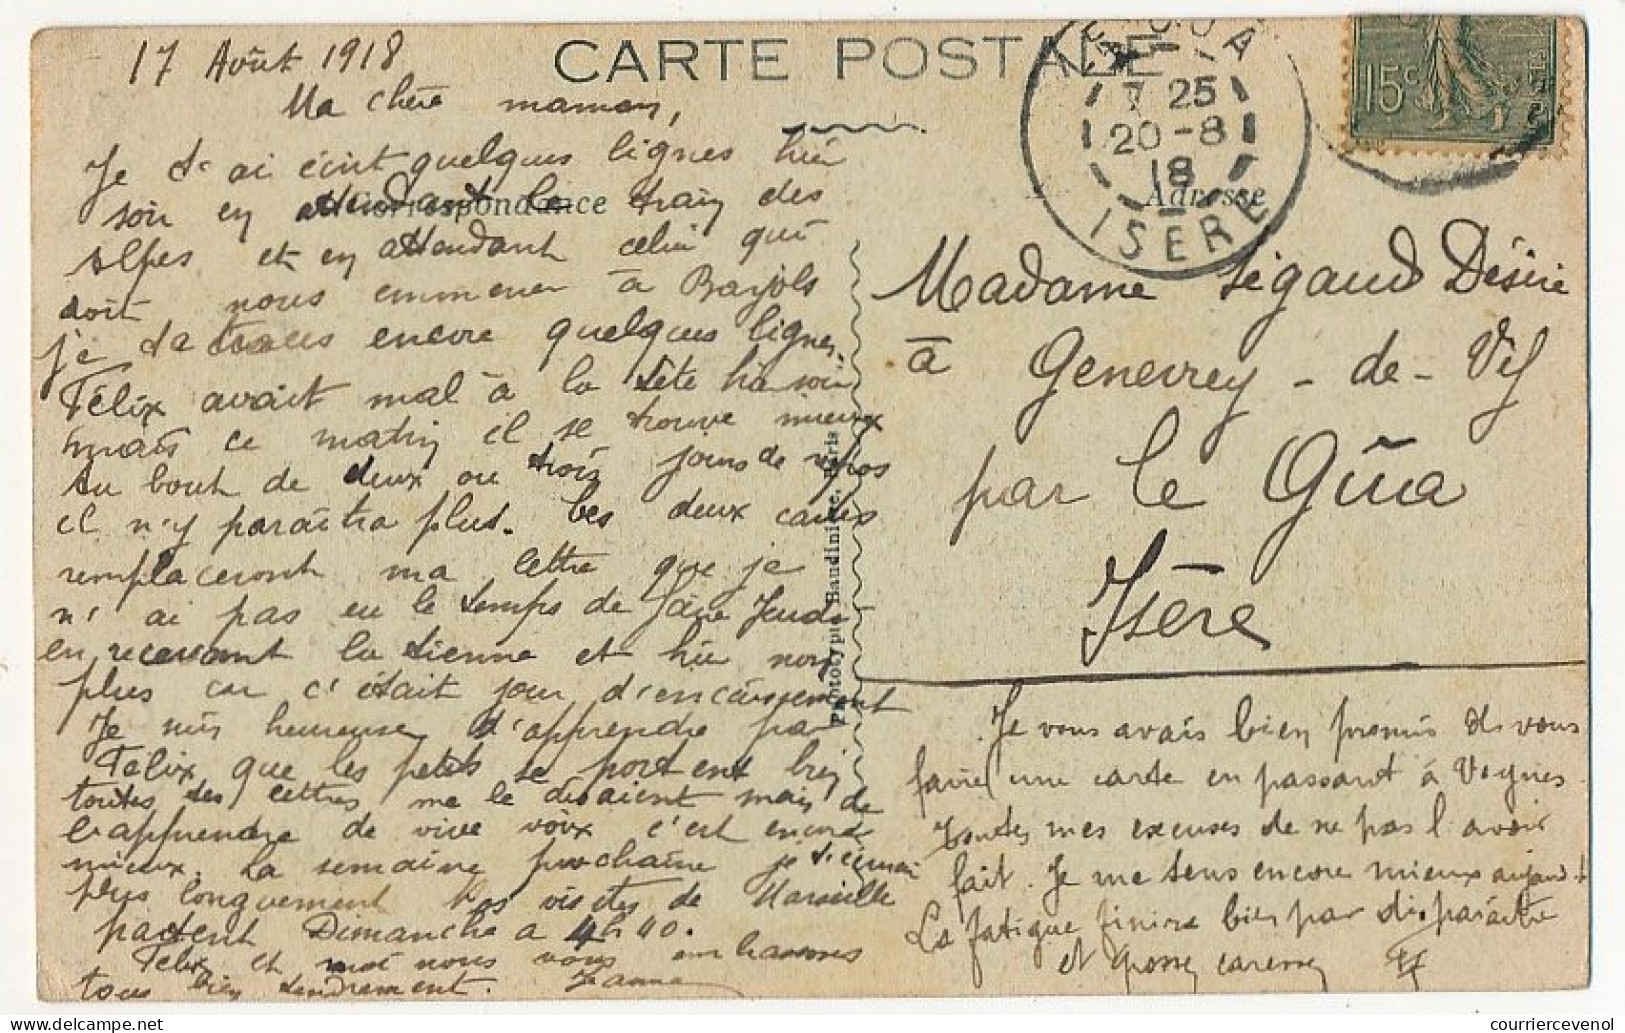 17 Août 1918
CARTE POSTALE
LE GUA
7 25
20-8
18
ISERE
15c
Ma chère maman,
Je t'ai écrit quelques lignes hier
soir en attendant le train des
Correspondance
Alpes et en attendant celui qui
doit nous emmener à Barjols
je te trace encore quelques lignes.
Félix avait mal à la tête hier soir
mais ce matin il se trouve mieux
Au bout de deux ou trois jours de repos
il n'y paraîtra plus. Ces deux cartes
remplaceront ma lettre que je
n'ai pas eu le temps de faire Jeudi
en recevant la tienne et hier non
plus car c'était jour d'encaissement
Je suis heureuse d'apprendre par
Félix que les petits se portent bien
toutes tes lettres me le disaient mais de
l'apprendre de vive voix c'est encore
mieux. La semaine prochaine je t'écrirai
plus longuement Nos visites de Marseille
partent Dimanche à 4h40.
Félix et moi nous vous embrassons
tous bien tendrement. Jeanne
Phototypie Baudinière, Paris
Adresse
Madame Ségaud Désiré
à Genevrey-de-Vif
par le Gûa
Isère
Je vous avais bien promis de vous
faire une carte en passant à Veynes
Toutes mes excuses de ne pas l'avoir
fait. Je me sens encore mieux aujourd'
La fatigue finira bien par disparaître
et grosses caresses